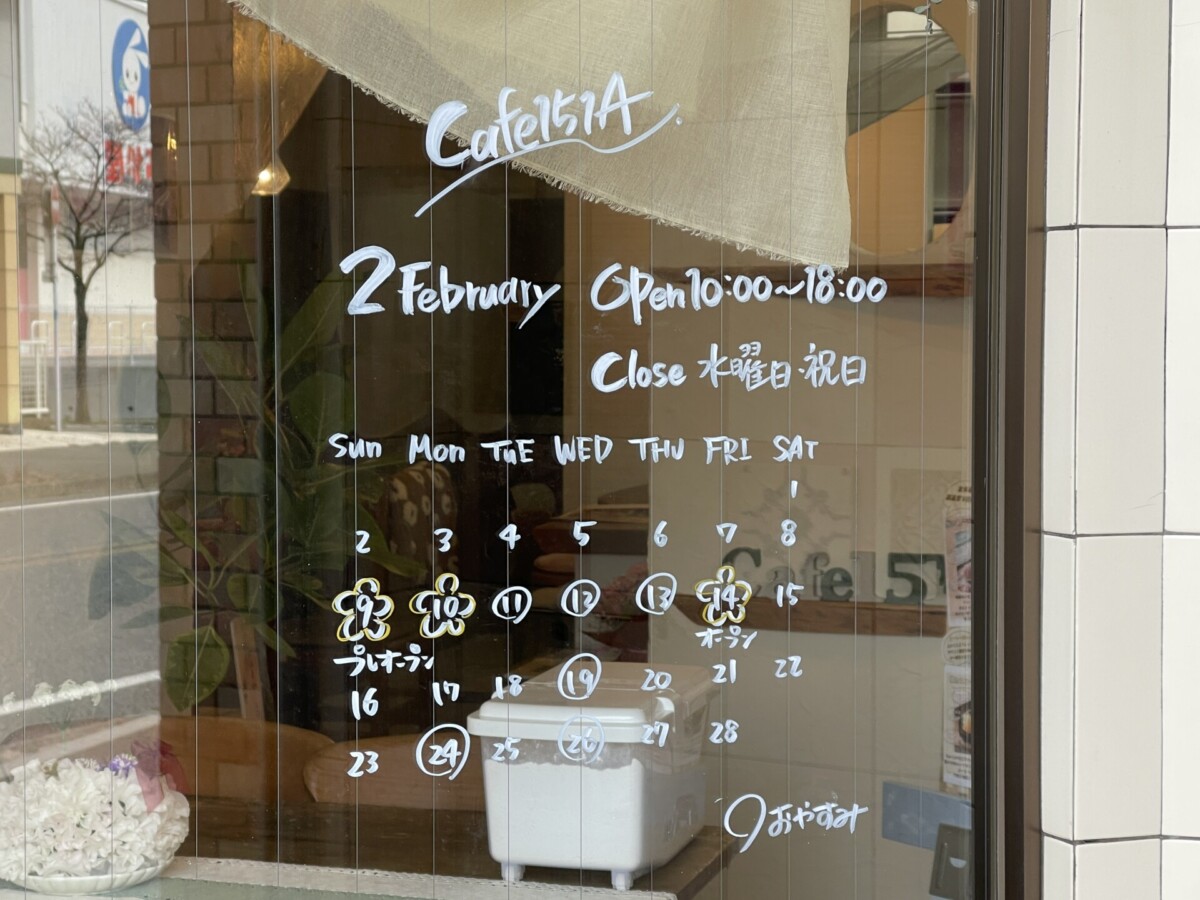 Cafe151A.
2 February Open 10:00~18:00
Close 水曜日・祝日
Sun Mon TUE WED THU FRI SAT
1
2 3 4 5 6 7 8
9 10 11 12 13 14 15
プレオープン オープン
16 17 18 19 20 21 22
23 24 25 26 27 28
○おやすみ
Cafe 151